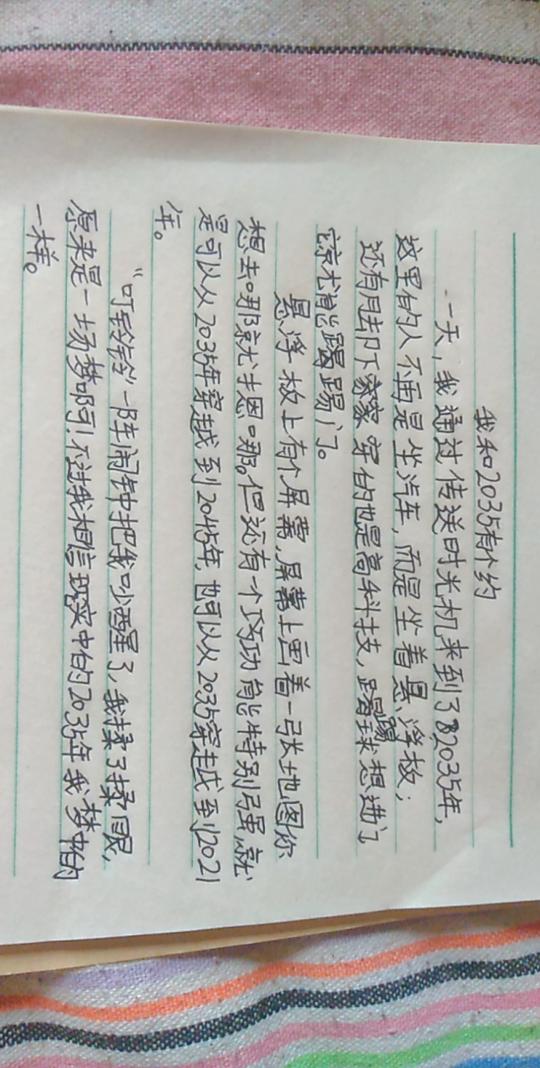 我和2035有个约
一天，我通过传送时光机来到了2035年，
这里的人不再是坐汽车，而是坐着悬浮板；
还有用脚下穿的也是高科技，踢球想进门
就能踢门。
悬浮板上有个屏幕，屏幕上画着一张地图你
想去哪就去哪。但还有一个功能特别强，就
是可以从2035年穿越到2045年，也可以从2035穿越到2021
年。
“叮铃铃”一阵闹钟把我吵醒了，我揉了揉眼，
原来是一场梦啊！不过我相信现实中的2035年我梦中的
一样。